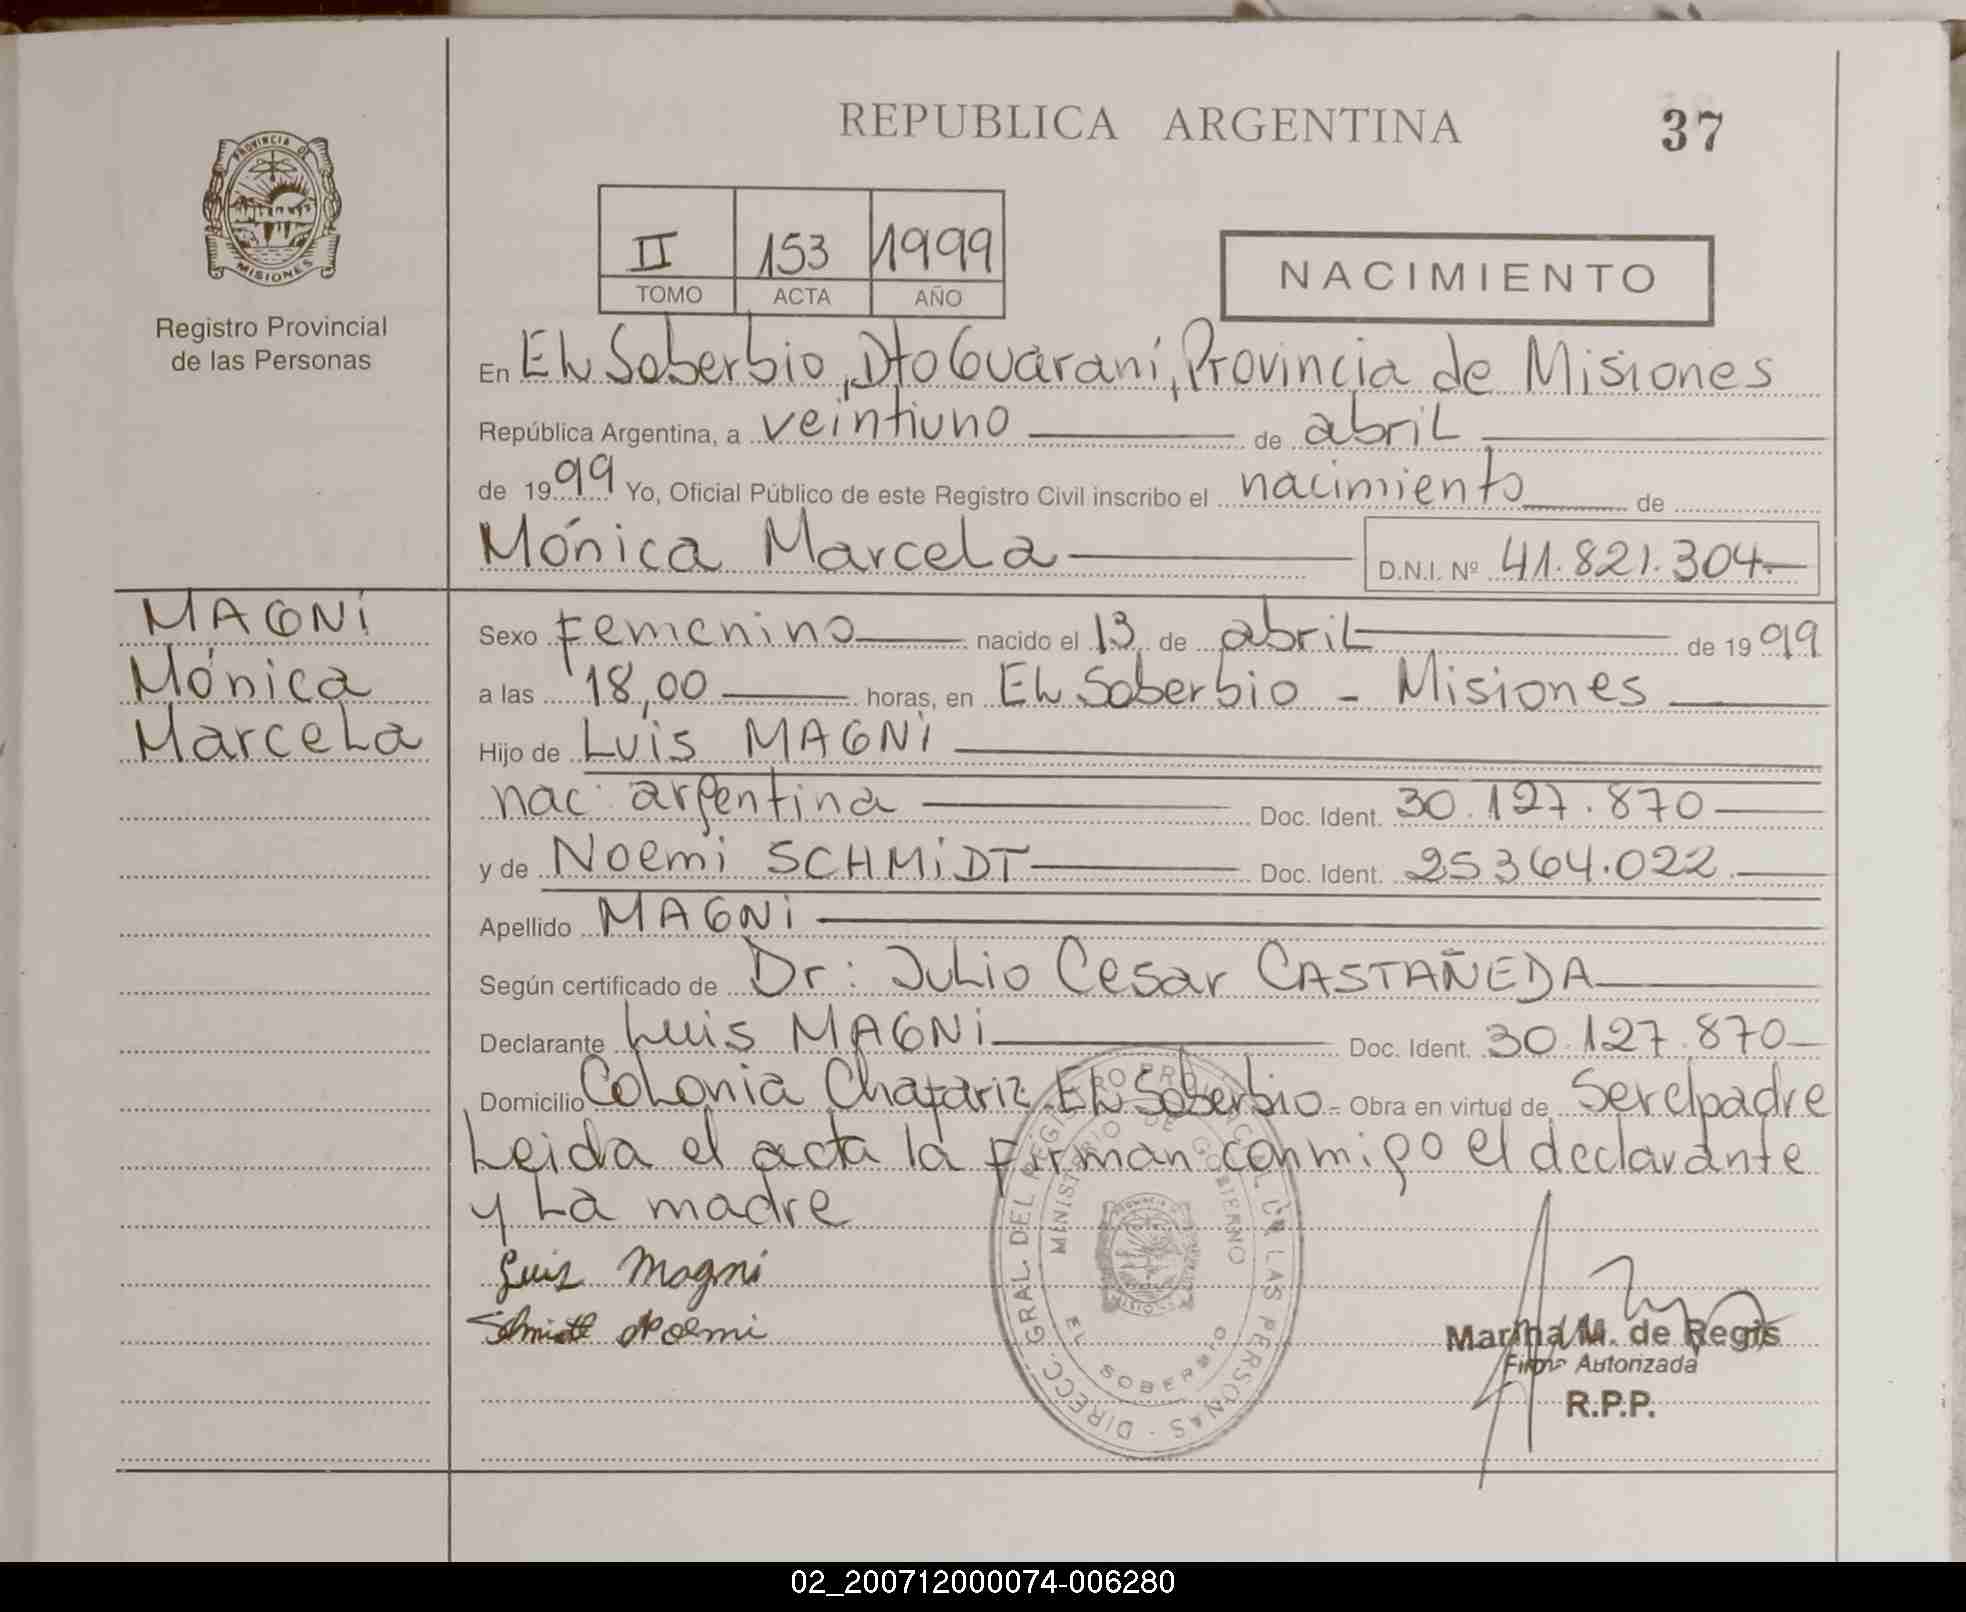 REPUBLICA ARGENTINA
37
PROVINCIA DE
MISIONES
Registro Provincial
de las Personas
II 153 1999
TOMO ACTA AÑO
NACIMIENTO
En El Soberbio, Dto Guaraní, Provincia de Misiones
República Argentina, a veintiuno de abril
de 1999 Yo, Oficial Público de este Registro Civil inscribo el nacimiento de
Mónica Marcela D.N.I. Nº 41.821.304
MAGNI
Mónica
Marcela
Sexo Femenino nacido el 13 de abril de 1999
a las 18,00 horas, en El Soberbio - Misiones
Hijo de Luis MAGNI
nac. argentina Doc. Ident. 30.127.870
y de Noemi SCHMIDT Doc. Ident. 25364.022
Apellido MAGNI
Según certificado de Dr: Julio Cesar CASTAÑEDA
Declarante Luis MAGNI Doc. Ident. 30.127.870
Domicilio Colonia Chafariz El Soberbio - Obra en virtud de Ser el padre
Leida el acta la firman conmigo el declarante
y la madre
Luis Magni
Schmidt Noemi
DIRECC. GRAL. DEL REGISTRO PROVINCIAL DE LAS PERSONAS
MINISTERIO DE GOBIERNO
EL SOBERBIO
Marina M. de Regis
Firma Autorizada
R.P.P.
02_200712000074-006280